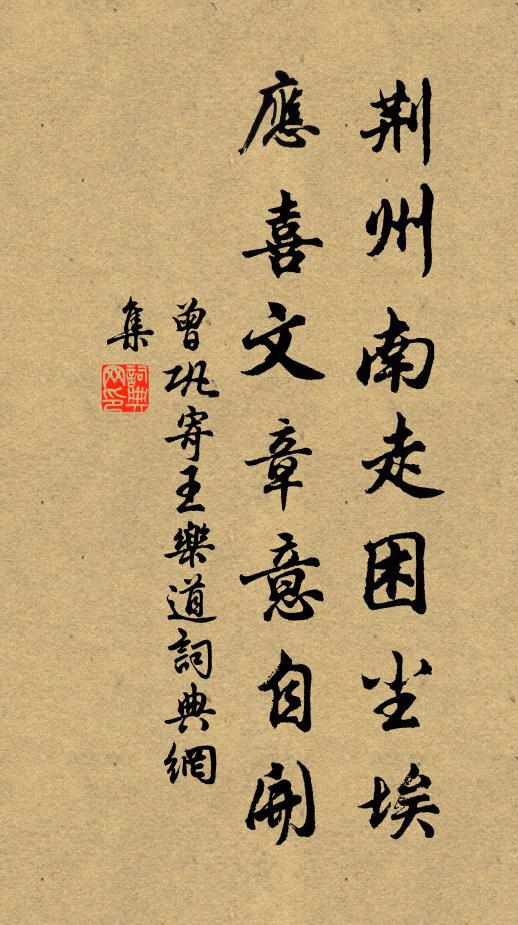 荆州南走困尘埃
應喜文章意自開
曾巩寄王樂道詞典網
集
詞典
网印